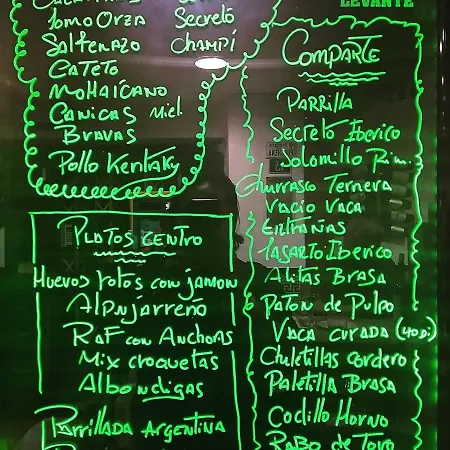 Lomo Orza
Secreto
Salteñazo
Champí
Cateto
Mohaicano
Canicas Miel
Bravas
Pollo Kentaky
Platos Centro
Huevos rotos con jamon
Alpujarreño
Raf con Anchoas
Mix croquetas
Albondigas
Parrillada Argentina
LEVANTE
Comparte
Parrilla
Secreto Iberico
Solomillo Rim.
Churrasco Ternera
Vacio Vaca
Entrañas
Lagarto Iberico
Alitas Brasa
Paton de Pulpo
Vaca curada (40 Di
Chuletillas cordero
Paletilla Brasa
Codillo Horno
Rabo de Toro